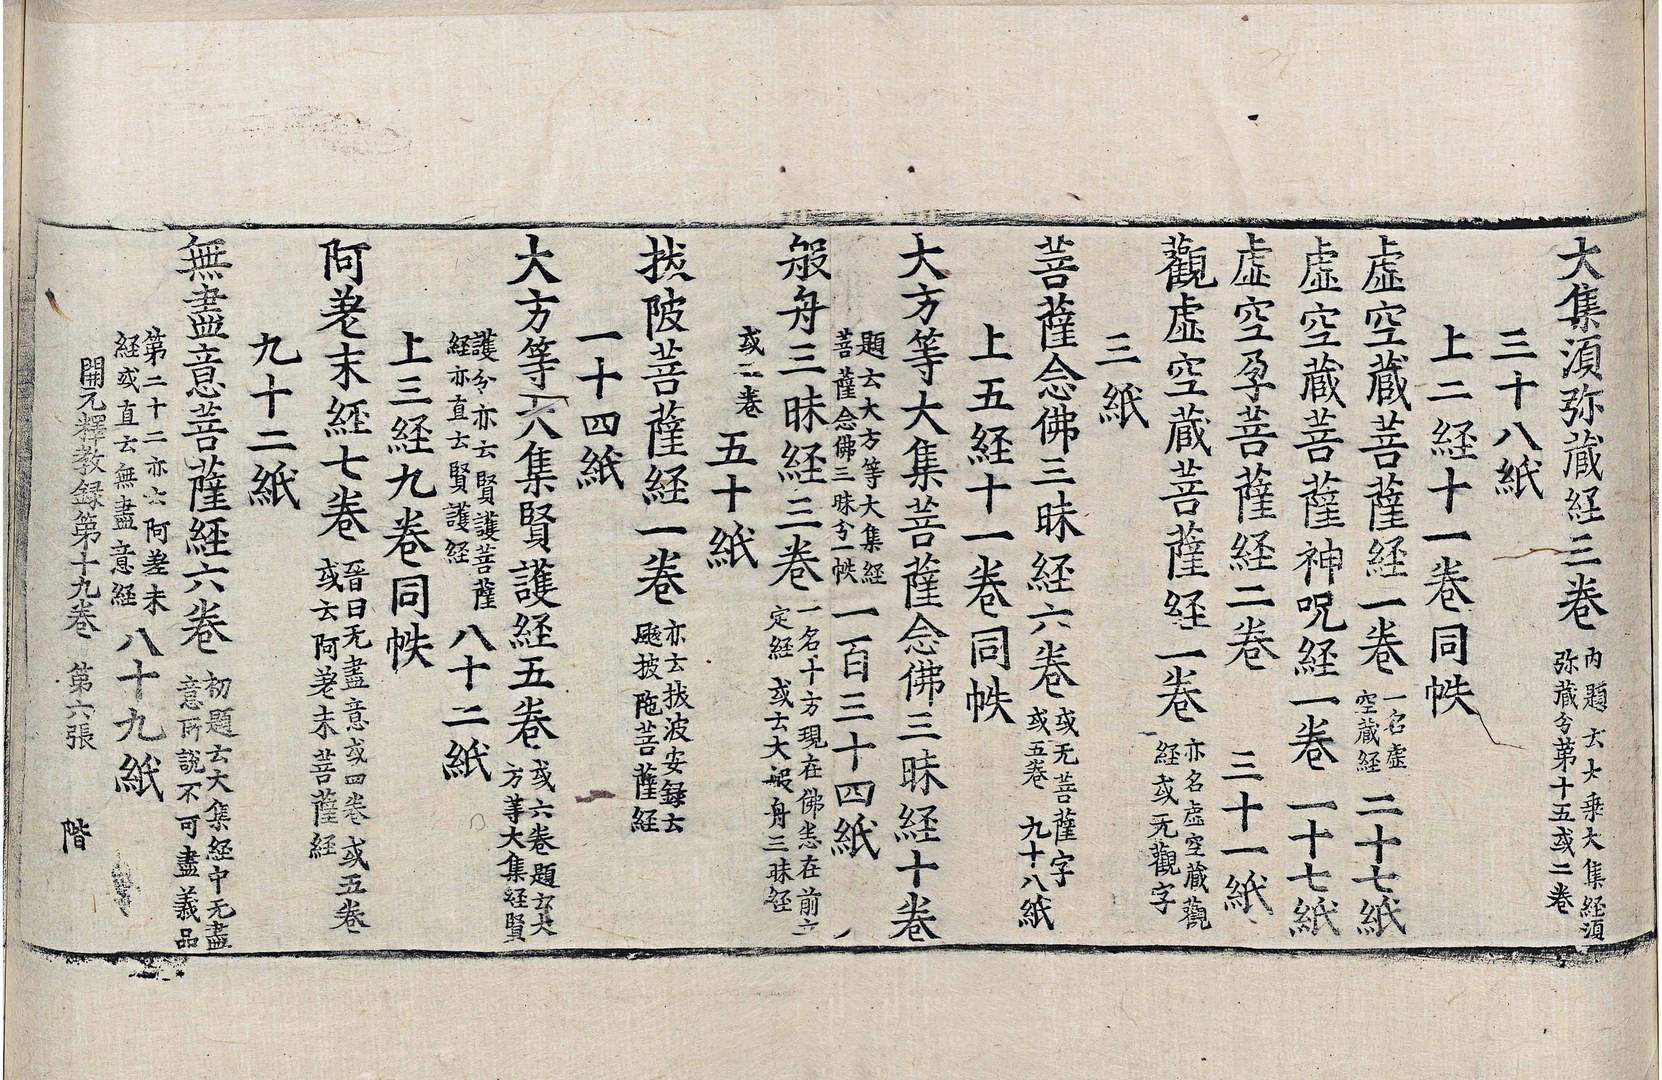 大集湏弥藏経三巻 内題云大乗大集経湏
弥藏分第十五或二巻
三十八紙
上二経十一巻同帙
虚空藏菩薩経一巻 一名虚
空藏経 二十七紙
虚空藏菩薩神呪経一巻 一十七紙
虚空孕菩薩経二巻 三十一紙
觀虚空藏菩薩経一巻 亦名虚空藏觀
経或无觀字
三紙
菩薩念佛三昧経六巻 或无菩薩字
或五巻 九十八紙
上五経十一巻同帙
大方等大集菩薩念佛三昧経十巻
題云大方等大集経
菩薩念佛三昧分一帙 一百三十四紙
般舟三昧経三巻 一名十方現在佛悉在前立
定経 或云大般舟三昧経
或二巻 五十紙
拔陂菩薩経一巻 亦云拔波安録云
颰披陁菩薩経
一十四紙
大方等大集賢護経五巻 或六巻題云大
方等大集経賢
護分亦云賢護菩薩
経亦直云賢護経 八十二紙
上三経九巻同帙
阿差末経七巻 晉曰无盡意或四巻或五巻
或云阿差末菩薩経
九十二紙
無盡意菩薩経六巻 初題云大集経中无盡
意所説不可盡義品
第二十二亦云阿差末
経或直云無盡意経 八十九紙
開元釋教録第十九巻 第六張 階